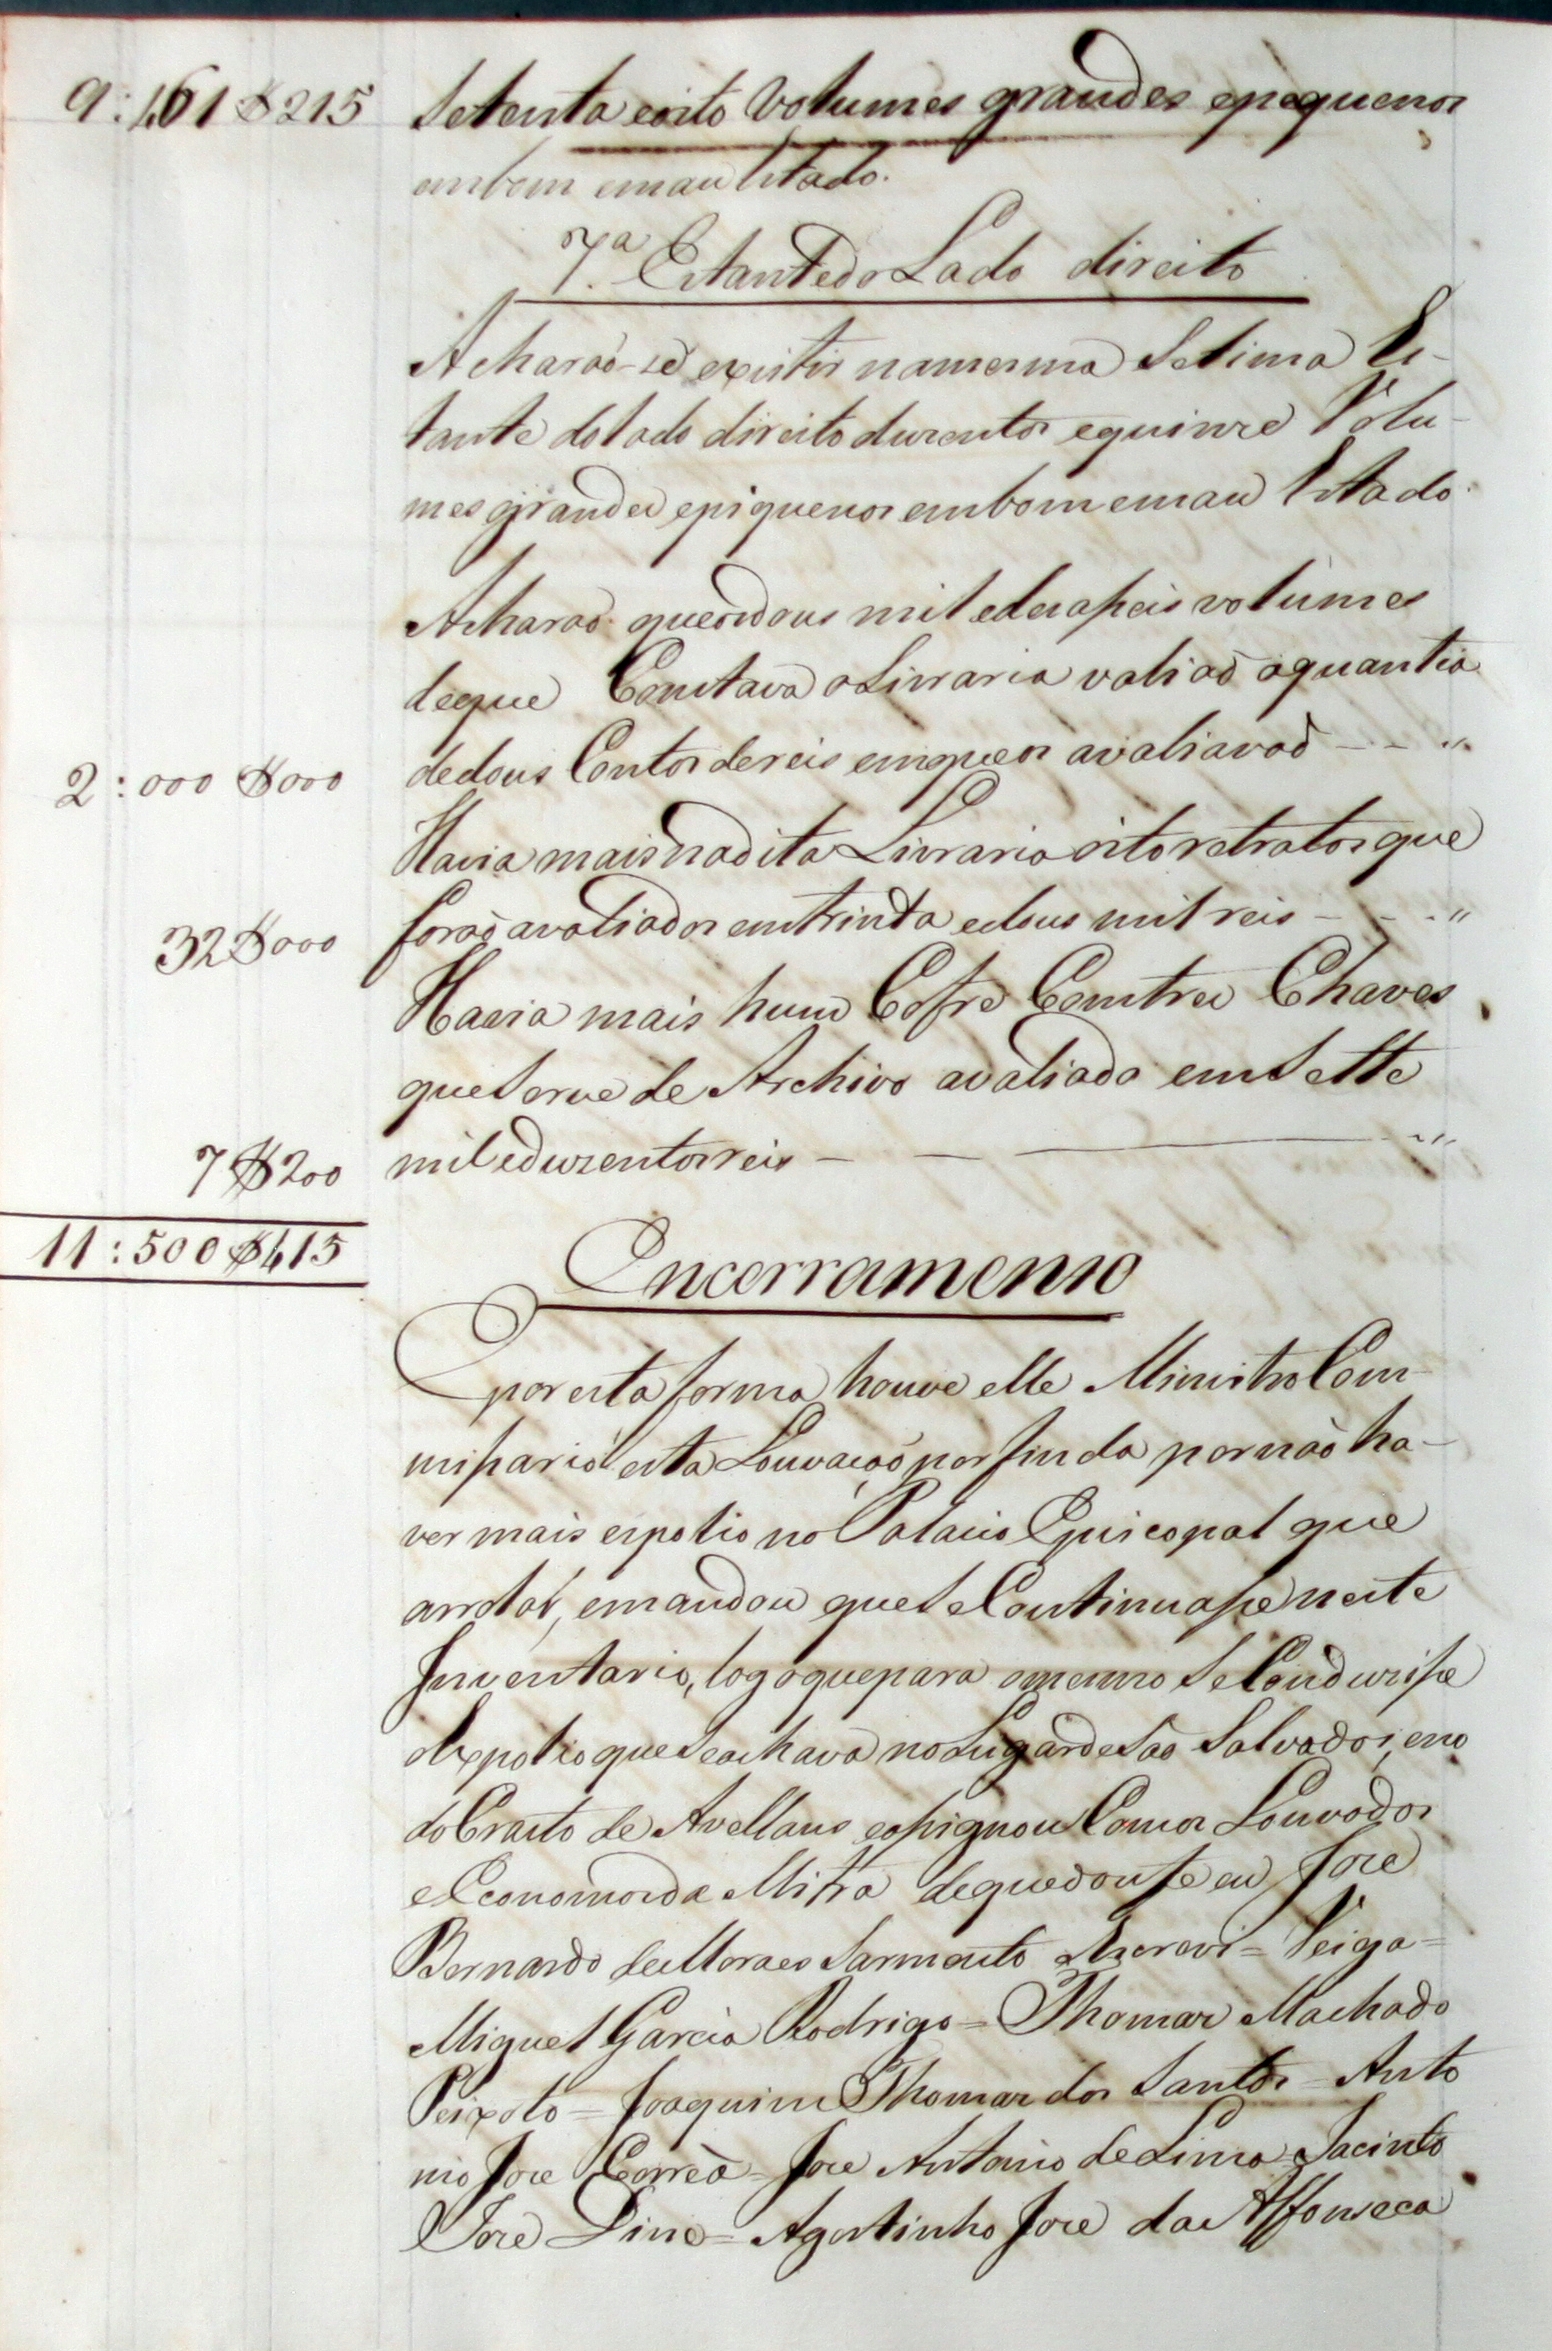 9:461$215 Setenta eoito Volumes grandes epequenos
embom emau Estado.
7.ª Estante do Lado direito
Acharaõ-se existir namesma Setima Es-
tante do lado direito duzentos equinze Volu-
mes grandes epiquenos embom emau Estado.
Acharaõ queos dous mil edezaseis volumes
deque Constava a Livraria valiaõ aquantia
2:000$000 dedous Contos dereis emqueos avaliavaõ - - "
Havia mais nadita Livraria oito retratos que
32$000 foraõ avaliados emtrinta edous mil reis - - - "
Havia mais hum Cofre Comtres Chaves
queServe de Archivo avaliado emSette
7$200 mil eduzentos reis - - - "
11:500$415
Encerramento
E poresta forma houve elle Ministro Com-
missario esta Louvaçaõ por finda pornaõ ha-
ver mais espolio no Palacio Episcopal que
arrolar, emandou queSeContinuasse neste
Inventario, logoquepara omesmo SeConduzisse
oExpolio queSeachava noLugardeSaõ Salvador, eno
doCrasto de Avellans eassignou Comos Louvados
eEconomoda Mitra dequedoufe eu Joze
Bernardo de Moraes Sarmento oEscrevi = Veiga =
Miguel Garcia Rodrigo = Thomas Machado
Peixoto = Joaquim Thomas dos Santos = Anto
nio Joze Corrêa = Joze Antonio de Lima = Jacinto
Joze Dine = Agostinho Joze da Affonseca